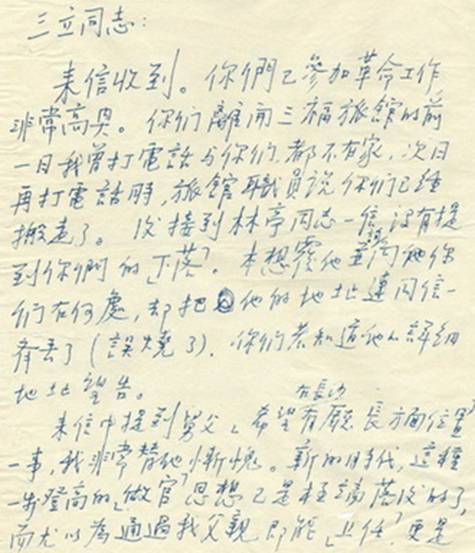 三立同志：
来信收到。你們已參加革命工作
非常高兴。你们離開三福旅館的前
一日我曾打電話与你们，都不在家，次日
再打電話時，旅館職員說你们已經
搬走了。後接到林亭同志一信，沒有提
到你們的「下落」。本想覆他並詢他你
们在何處，却把他的地址連同信一
齊丢了（誤燒了）。你们若知道他们詳細
地址望告。
来信中提到舅父「希望在長沙有廳長方面位置」
一事，我非常替他慚愧。新的時代，這種
一步登高的「做官」思想已是極端落後的了，
而尤以為通過我父親即能「上任」，更是